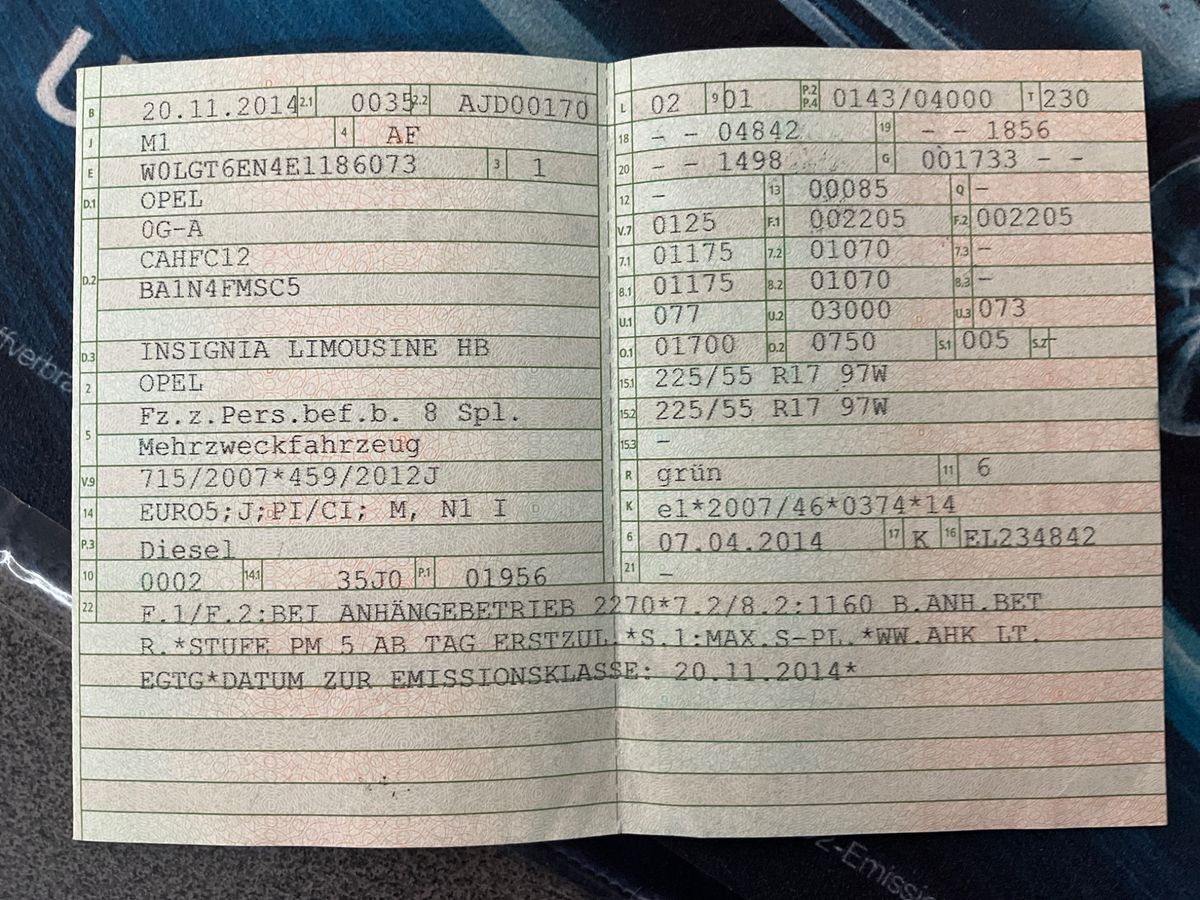 B 20.11.2014 2.1 0035 2.2 AJD00170
J M1 4 AF
E W0LGT6EN4E1186073 3 1
D.1 OPEL
0G-A
D.2 CAHFC12
BA1N4FMSC5
D.3 INSIGNIA LIMOUSINE HB
2 OPEL
5 Fz.z.Pers.bef.b. 8 Spl.
Mehrzweckfahrzeug
V.9 715/2007*459/2012J
14 EURO5;J;PI/CI; M, N1 I
P.3 Diesel
10 0002 14.1 35J0 P.1 01956
L 02 9 01 P.2 P.4 0143/04000 T 230
18 - - 04842 19 - - 1856
20 - - 1498 G 001733 - -
12 - 13 00085 Q -
V.7 0125 F.1 002205 F.2 002205
7.1 01175 7.2 01070 7.3 -
8.1 01175 8.2 01070 8.3 -
U.1 077 U.2 03000 U.3 073
O.1 01700 O.2 0750 S.1 005 S.2 -
15.1 225/55 R17 97W
15.2 225/55 R17 97W
15.3 -
R grün 11 6
K e1*2007/46*0374*14
6 07.04.2014 17 K 16 EL234842
21 -
22 F.1/F.2:BEI ANHÄNGEBETRIEB 2270*7.2/8.2:1160 B.ANH.BET
R.*STUFE PM 5 AB TAG ERSTZUL.*S.1:MAX.S-PL.*WW.AHK LT.
EGTG*DATUM ZUR EMISSIONSKLASSE: 20.11.2014*